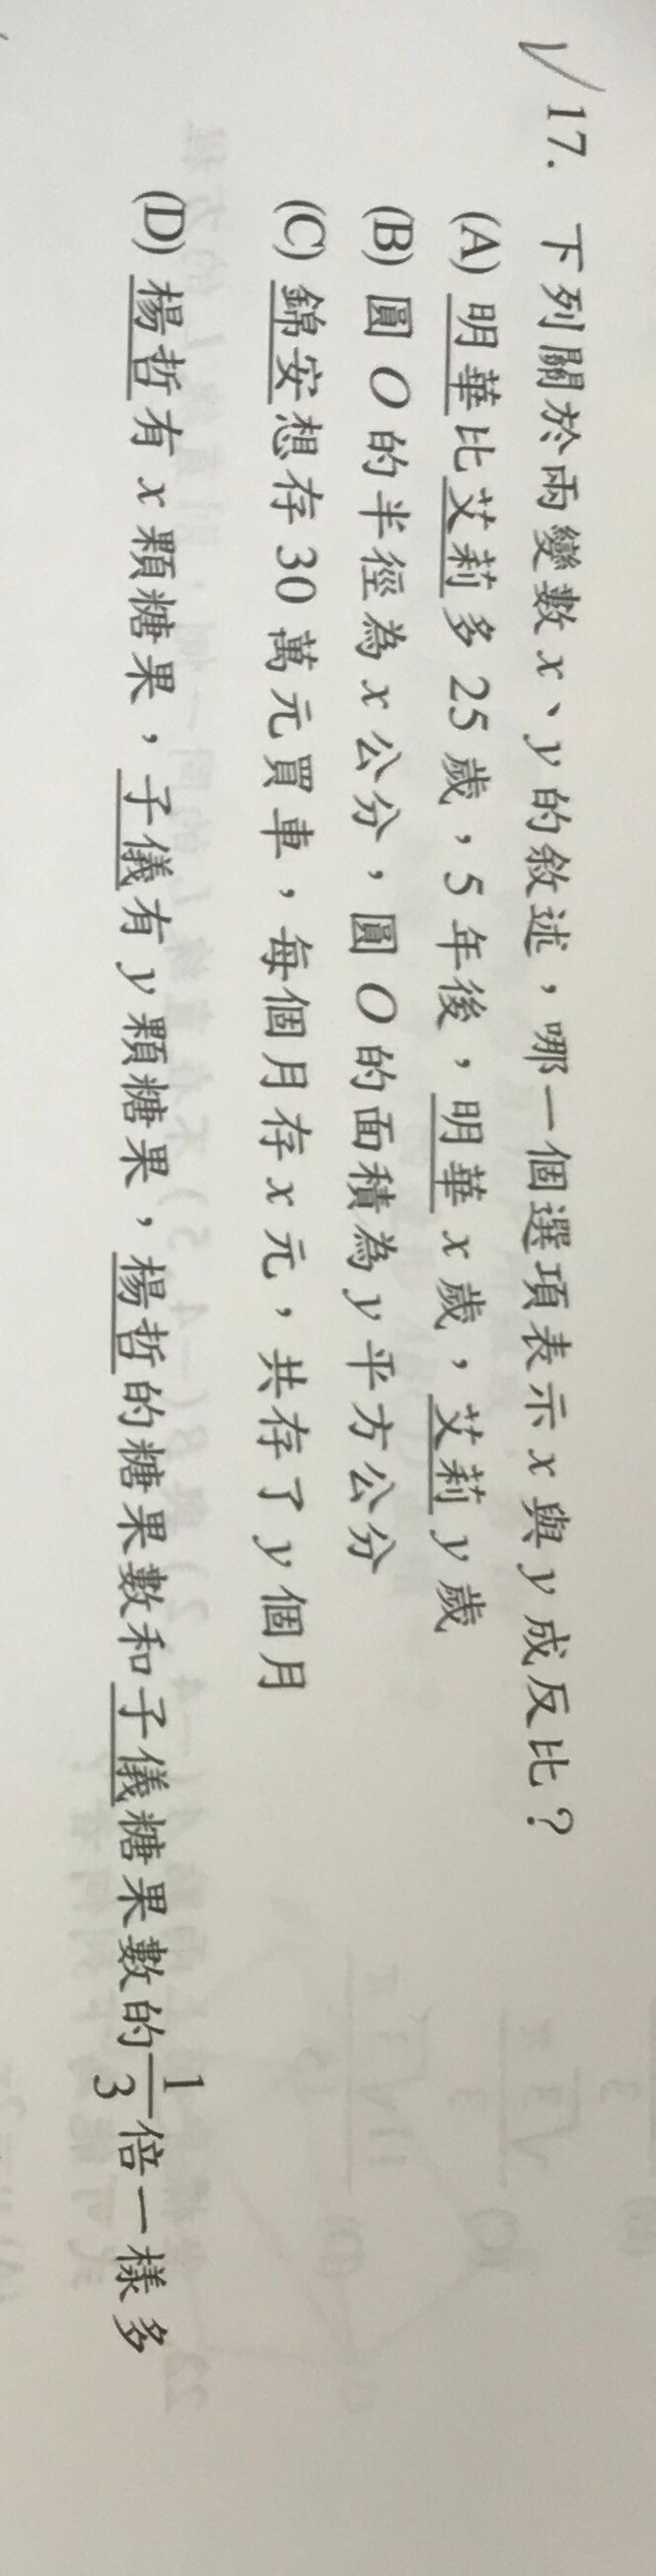 17. 下列關於兩變數 x、y 的敘述，哪一個選項表示 x 與 y 成反比？
(A) 明華比艾莉多 25 歲，5 年後，明華 x 歲，艾莉 y 歲
(B) 圓 O 的半徑為 x 公分，圓 O 的面積為 y 平方公分
(C) 錦安想存 30 萬元買車，每個月存 x 元，共存了 y 個月
(D) 楊哲有 x 顆糖果，子儀有 y 顆糖果，楊哲的糖果數和子儀糖果數的 1/3 倍一樣多